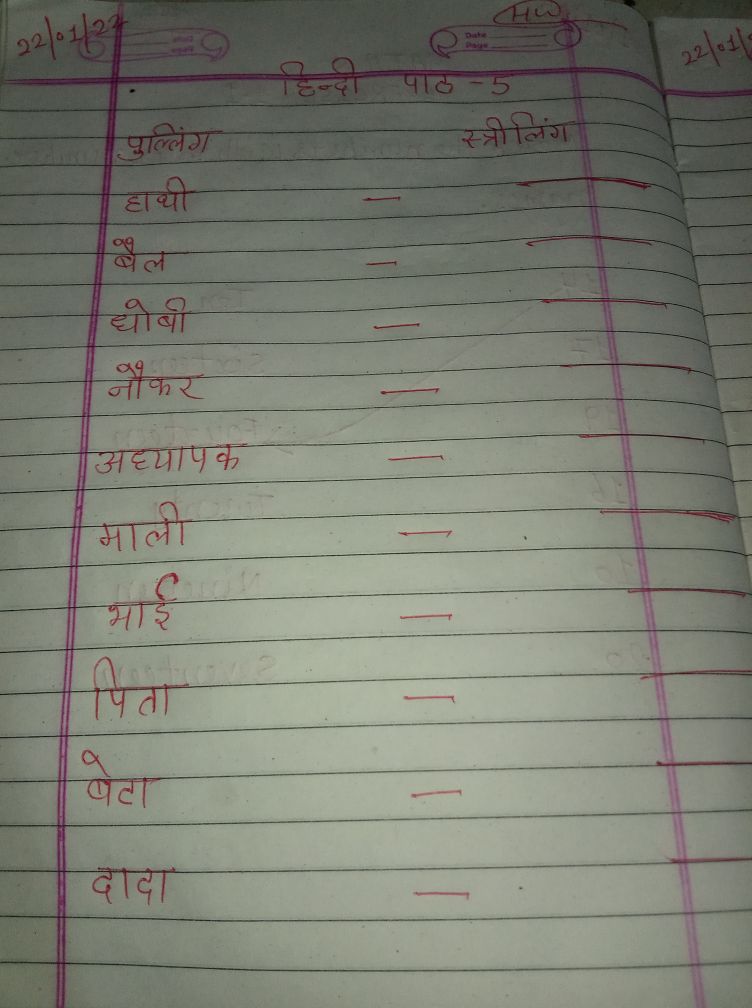 22/01/24
HW
Date
Page
22/01/2
हिन्दी पाठ - 5
पुल्लिंग स्त्रीलिंग
हाथी —
बैल —
धोबी —
नौकर —
अध्यापक —
माली —
भाई —
पिता —
बेटा —
दादा —